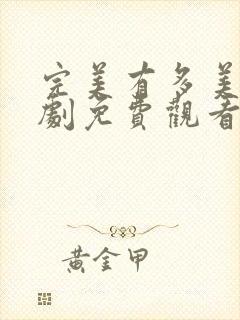 完美有多美
劇免費觀看
黃金甲